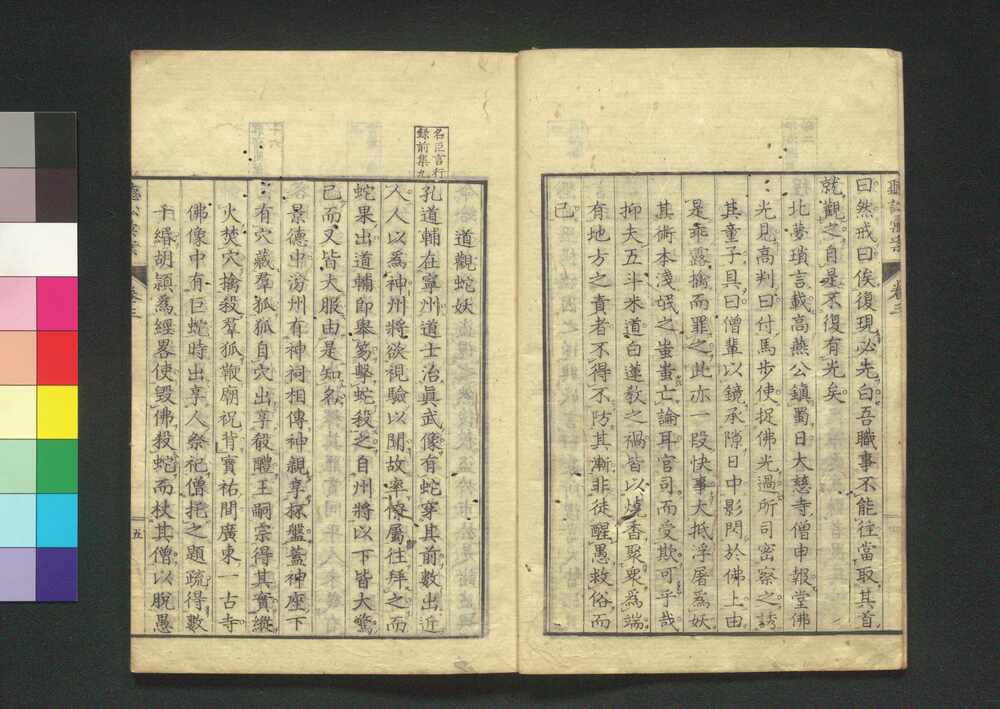 曰然戒曰俟復現必先白吾職事不能往當取其首
就觀之自是不復有光矣
北夢瑣言載高燕公鎮蜀日大慈寺僧申報堂佛
光見高判曰付馬步使捉佛光過所司密察之誘
其童子具曰僧輩以鏡承隙日中影閃於佛上由
是乖露擒而罪之此亦一段快事大抵浮屠爲妖
其術本淺氓之蚩蚩亡論耳官司而受欺可乎哉
抑夫五斗米道白蓮教之禍皆以燒香聚衆爲端
有地方之責者不得不防其漸非徒醒愚救俗而
已
名臣言行
錄前集九
道觀蛇妖
孔道輔在寧州道士治眞武像有蛇穿其前數出近
人人以爲神州將欲視驗以聞故率僚屬往拜之而
蛇果出道輔即舉笏擊蛇殺之自州將以下皆大驚
已而又皆大服由是知名
景德中汾州有神祠相傳神親享杯盤蓋神座下
有穴藏羣狐狐自穴出享殽醴王嗣宗得其實縱
火焚穴擒殺羣狐鞭廟祝背寶祐間廣東一古寺
佛像中有巨蛇時出享人祭祀僧托之題疏得數
千緡胡頴爲經畧使毀佛殺蛇而杖其僧以脫愚
卷三
五